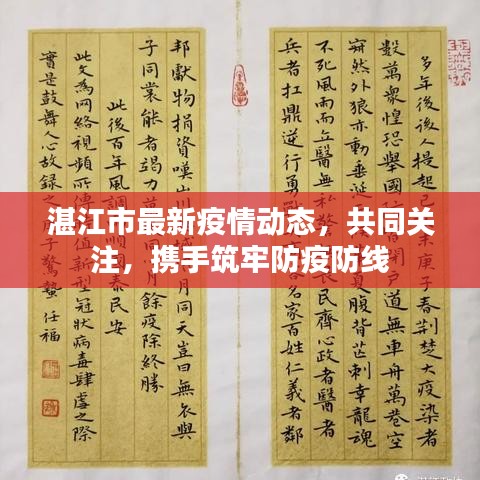 多年後後人提起己庚子春荆楚大疫染者
數萬衆惶恐舉國道無車舟萬巷空
突然外狼亦動垂涎腹背芒刺幸龍魂
不死風雨而立民齊心政者醫者
兵者扛鼎逆行勇名家百姓仁義者鄰
邦獻物捐資嘆山月同天豈曰無衣與
子同裳能者竭力餘疫除終勝
此後百年風調泰民安
此文爲网絡視頻所型冠狀病毒肆虐之際
實是鼓舞人心故録之驚蟄 任福
湛江市最新疫情动态，共同关
注，携手筑牢防疫防线